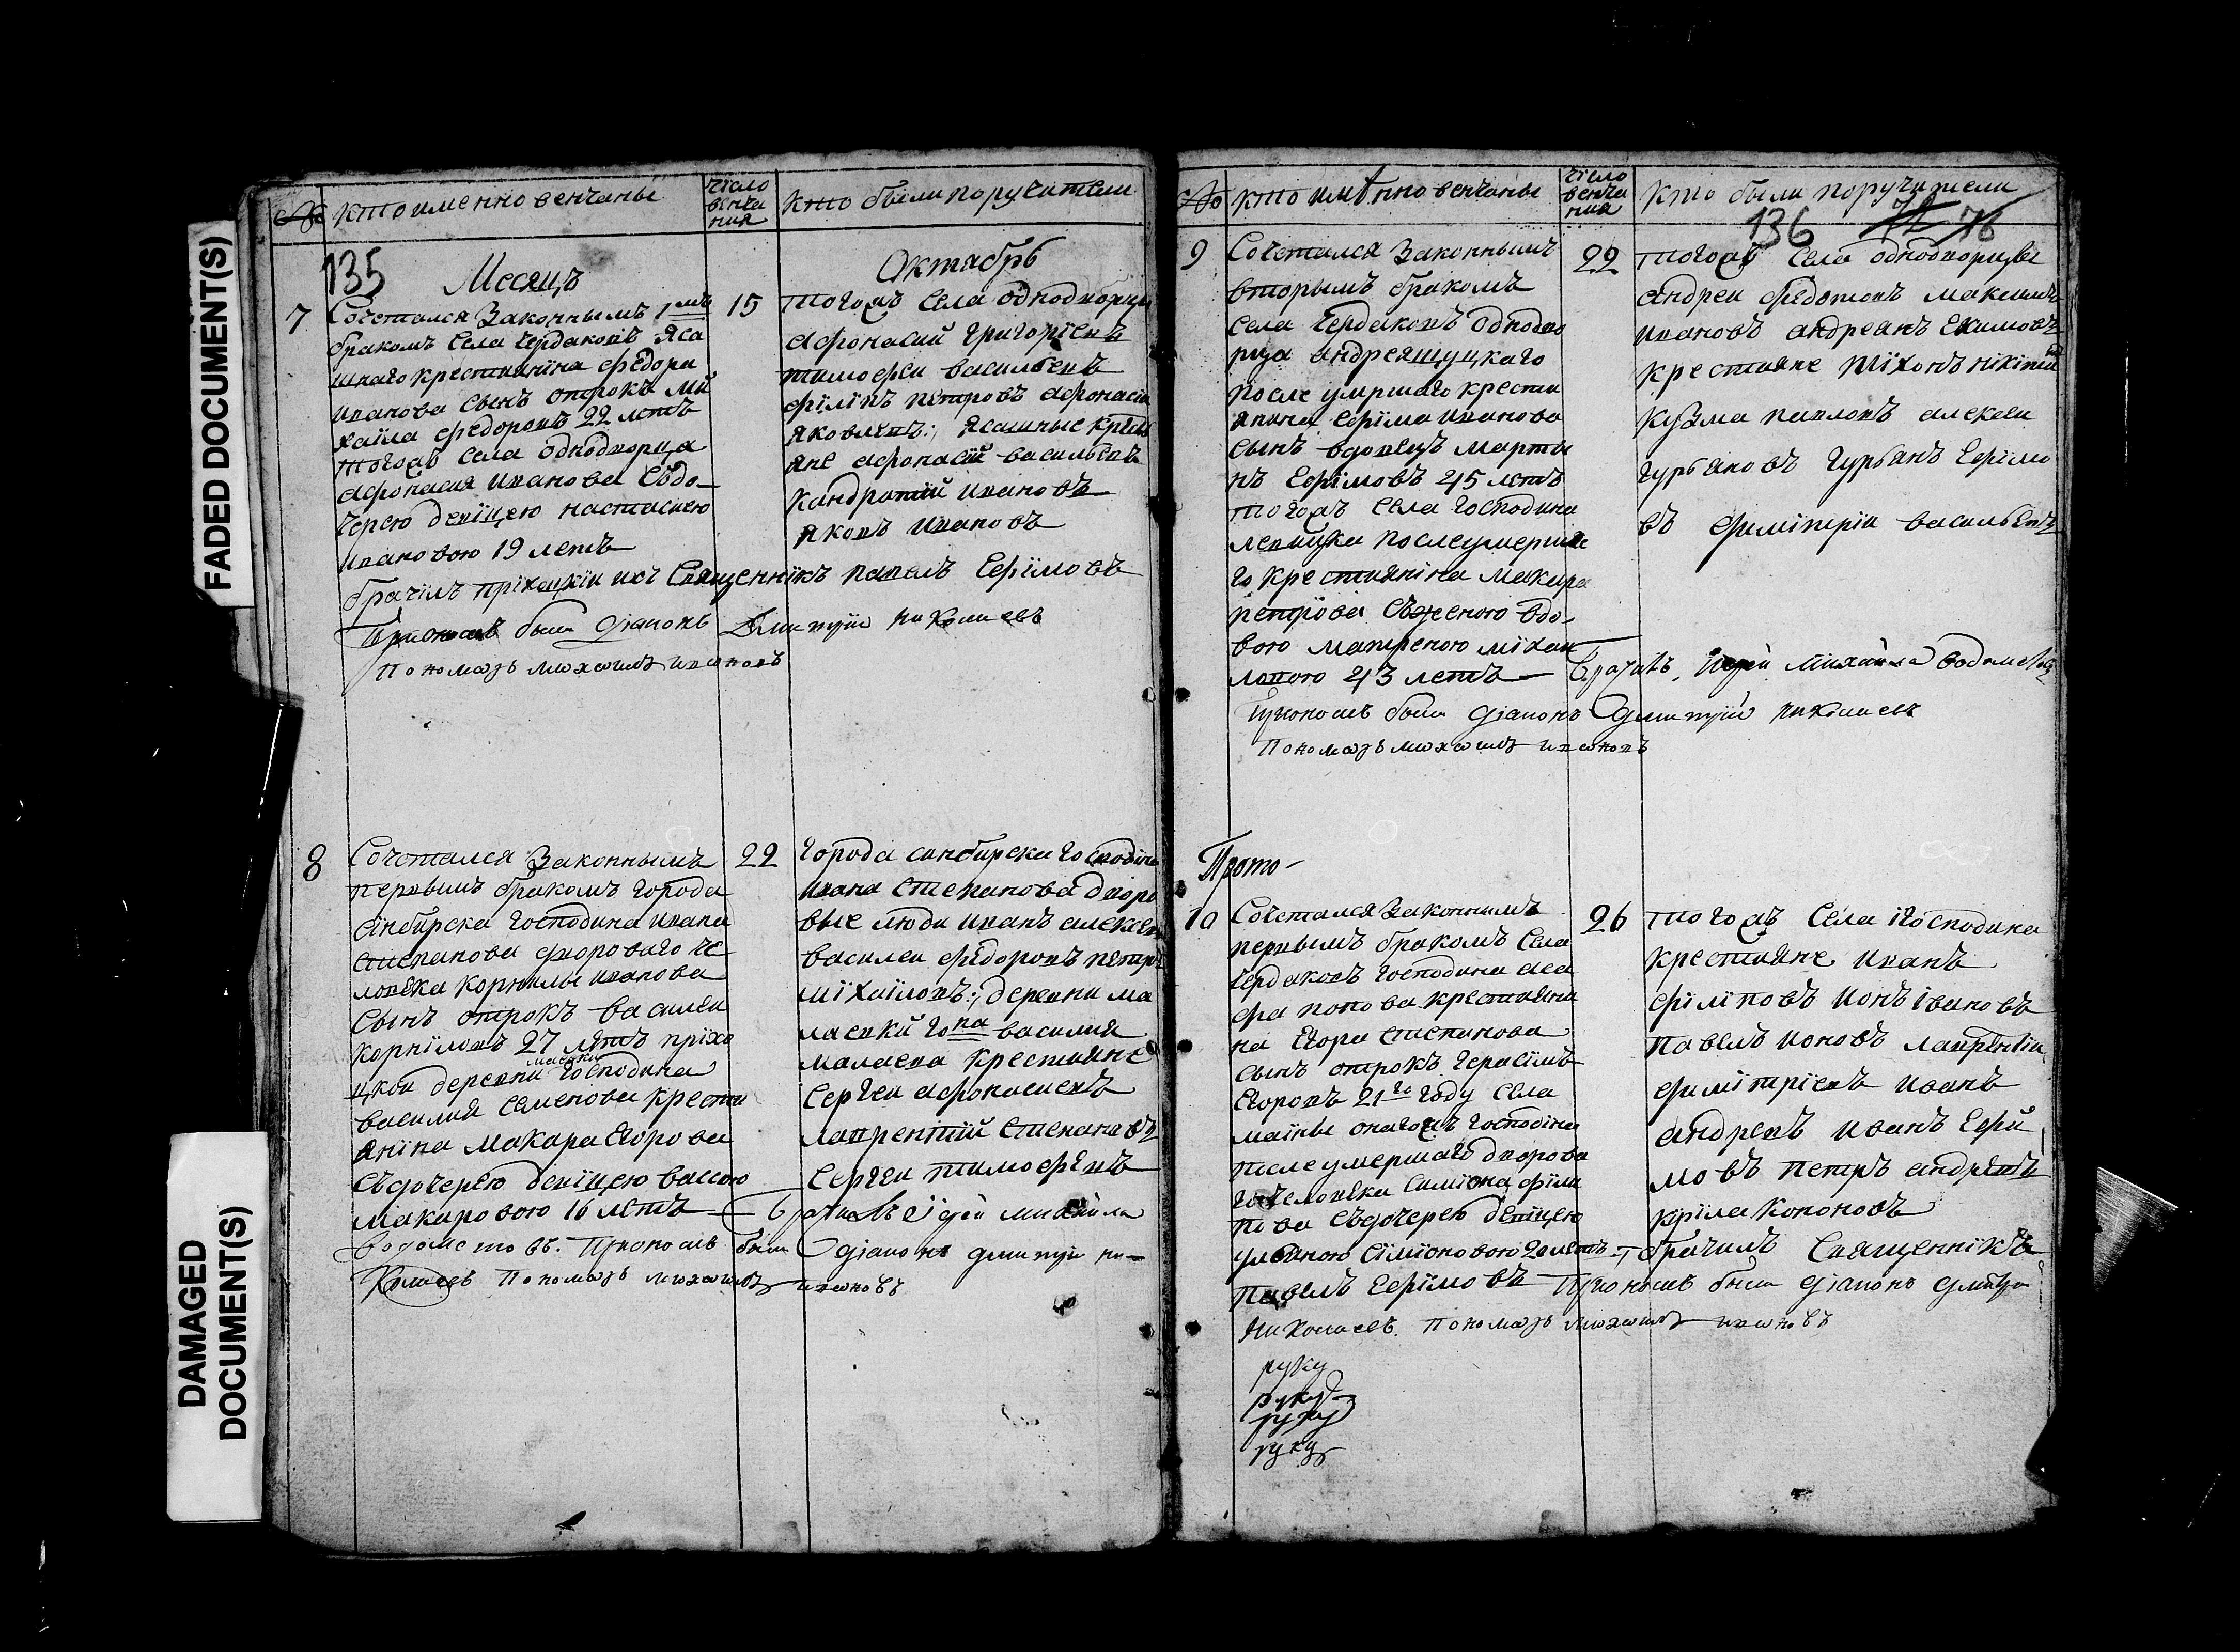 FADED DOCUMENT(S)
DAMAGED
DOCUMENT(S)
№
кто именно венчаны
число
венча
ния
кто были поручители
135
Месяцъ
Октябрь
7
Сочетался Законнымъ 1мъ
бракомъ села Чердаковъ Яса
шнаго крестьянина Федора
Иванова сынъ отрокъ Ми
хаила Федоровъ 22 летъ
тогожъ села однодворца
Афонасия Иванова Съдо
черею девiцею настасиею
Ивановою 19 летъ
15
тогожъ села однодворцы
Афонасий Григорiевъ
тимофеи васильевъ
фiлiпъ петровъ афонаси
Яковлевъ; Ясашные крес
яне афонасiй васильевъ
кандратiй ивановъ
яковъ ивановъ
брачiлъ Священнiкъ павелъ Ефiмовъ
были дiаконъ Дмитрiй Николаевъ
Пономарь михаилъ ивановъ
8
Сочетался Законнымъ
первымъ бракомъ города
Сiнбирска господина ивана
степанова дворового че
ловека корнилы иванова
сынъ отрокъ василеи
корнiловъ 27 летъ прiхо
цкои деревни господина
василия семенова крестья
янiна макара Егорова
Съдочерею девiцею вассою
макаровою 16 летъ
22
города синбирска господина
ивана степанова дворо
вые люди иванъ алексеи
василеи федоровъ петр
мiхаiловъ; деревни ма
лаевки гона василия
малаева крестьяне
сергеи афонасиевъ
лаврентiй степановъ
Сергеи тимофеевъ
Брачилъ Iерей михаила
Водометовъ. При ономъ были дiаконъ дмитрiй ни-
колаевъ Пономарь михаилъ ивановъ
№
кто имѣнно венчаны
число
венча
ния
кто были поручители
136
76
9
Сочетался Законнымъ
вторымъ бракомъ
села Чердаковъ однодво
рца
после умршаго крести
янина ефiма иванова
сынъ вдовецъ марты
нъ Ефiмовъ 45 летъ
тогожъ села господина
левицка послеумерша
го крестиянiна макара
петрова Съженою вдо
вою матреною мiхаи
ловою 43 летъ
22
тогожъ села однодворцы
андреи федотовъ максимъ
ивановъ андреянъ Екимовъ
крестьяне тiхонъ нiкiтiн
кузма павловъ алексеи
гурьяновъ гурьянъ Ефiмо
въ дмiтрiи васильевъ
Брачилъ Iерей Михаила Водометовъ
При ономъ были дiаконъ Дмитрiй Николаевъ
Пономарь михаилъ ивановъ
Прото-
10
Сочетался Законнымъ
первымъ бракомъ Села
Чердаковъ господина аса
фа попова крестиянi
на Егора степанова
сынъ отрокъ герасiмъ
Егоровъ 21го году села
маiны онагожъ господiна
после умершаго дворова
го человека Симiона фiли
пова Съдочерею девiцею
ульяною Сiмiоновою 20 летъ
26
тогожъ села господина
крестьяне иванъ
фiлiповъ ионъ iвановъ
павелъ ионовъ лаврентiи
дмiтрiевъ иванъ
андревъ иванъ Ефи
мовъ петръ андревъ
крiла кононовъ
брачилъ Священнiкъ
павелъ Ефiмовъ При ономъ были дiаконъ Дмитри
Николаевъ. Пономарь михаилъ ивановъ
руку
руку
руку
руку